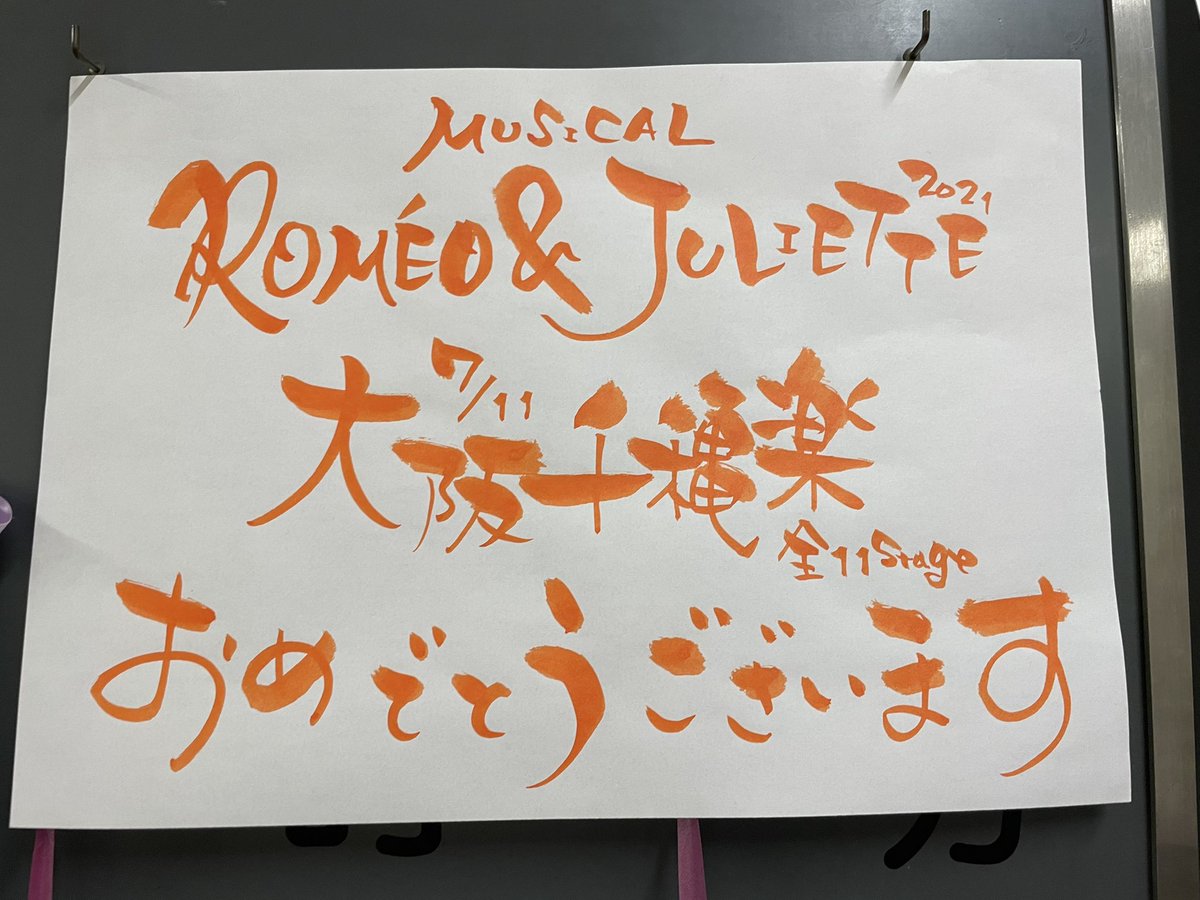 MUSICAL
ROMÉO & JULIETTE 2021
7/11
大阪千穐楽
全11Stage
おめでとうございます